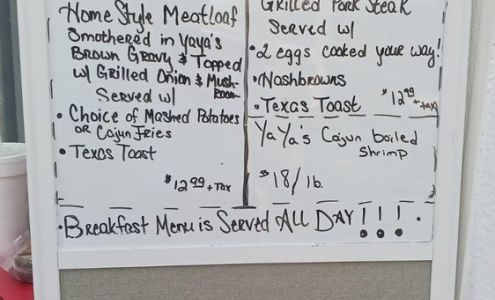 Home Style Meatloaf
Smothered in Yaya's
Brown Gravy & Topped
w/ Grilled Onion & Mush-
Room
Served w/
• Choice of Mashed Potatoes
OR Cajun Fries
• Texas Toast
$12.99 + Tax
Grilled Pork Steak
Served w/
• 2 eggs cooked your way!
• Hashbrowns
• Texas Toast $12.99 + Tax
YaYa's Cajun boiled
Shrimp
$18/lb.
• Breakfast Menu is Served All Day!!!